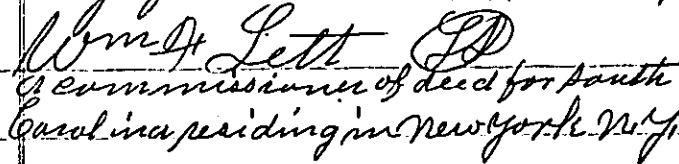 Wm F Lett LS
A commissioner of deed for South
Carolina residing in New York N.Y.